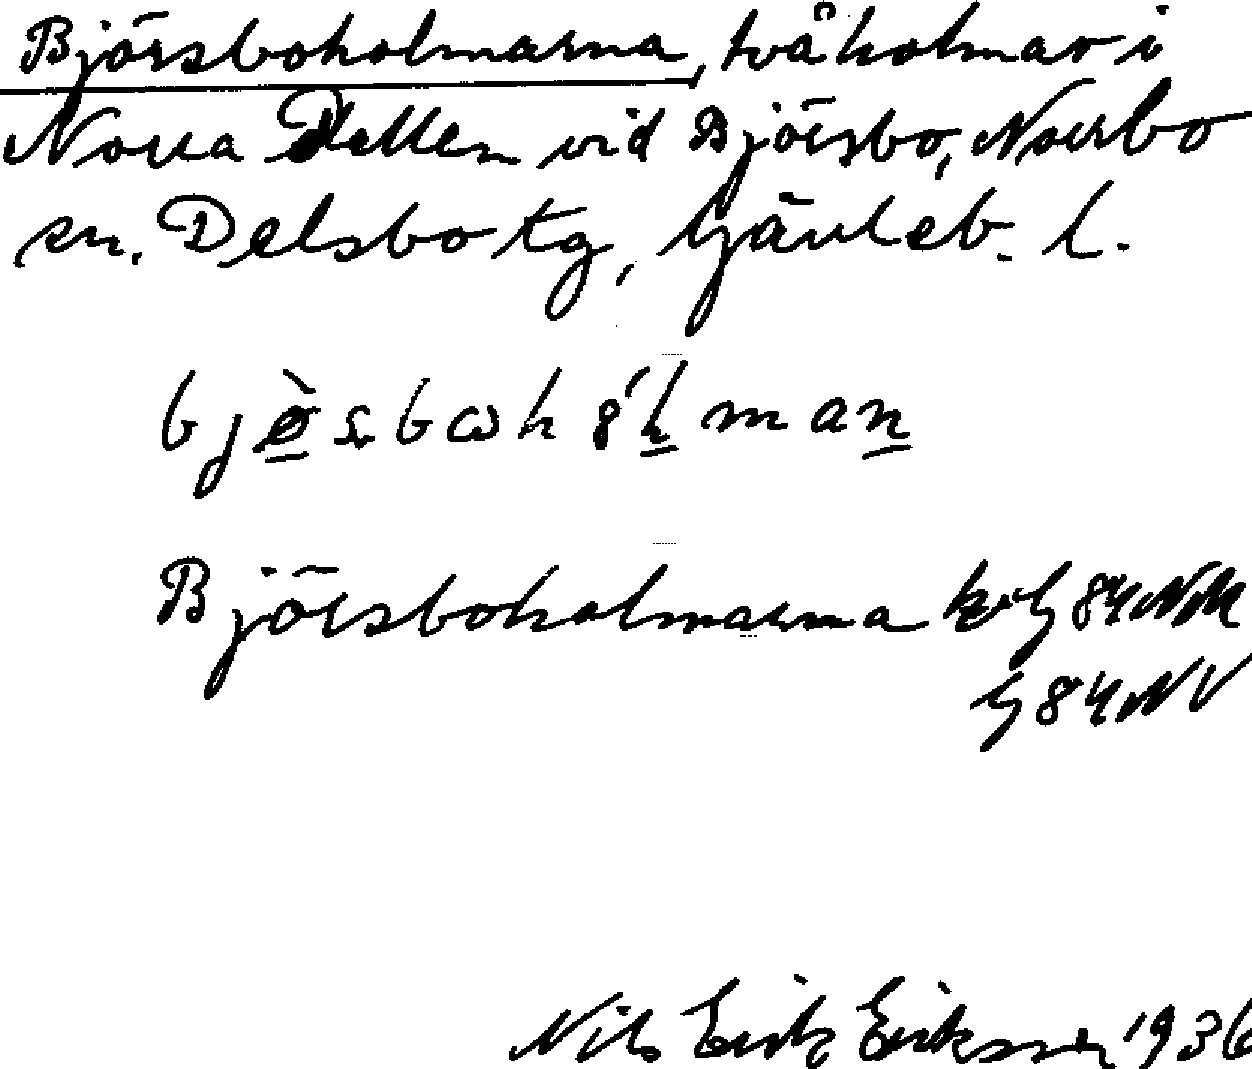 Björsboholmarna, två holmar i
Norra Dellen vid Björsbo, Norrbo
sn. Delsbo tg, Gävleb. l.
Björsboholmarna
G 84 NV
Nils Erik Eriksson 1936